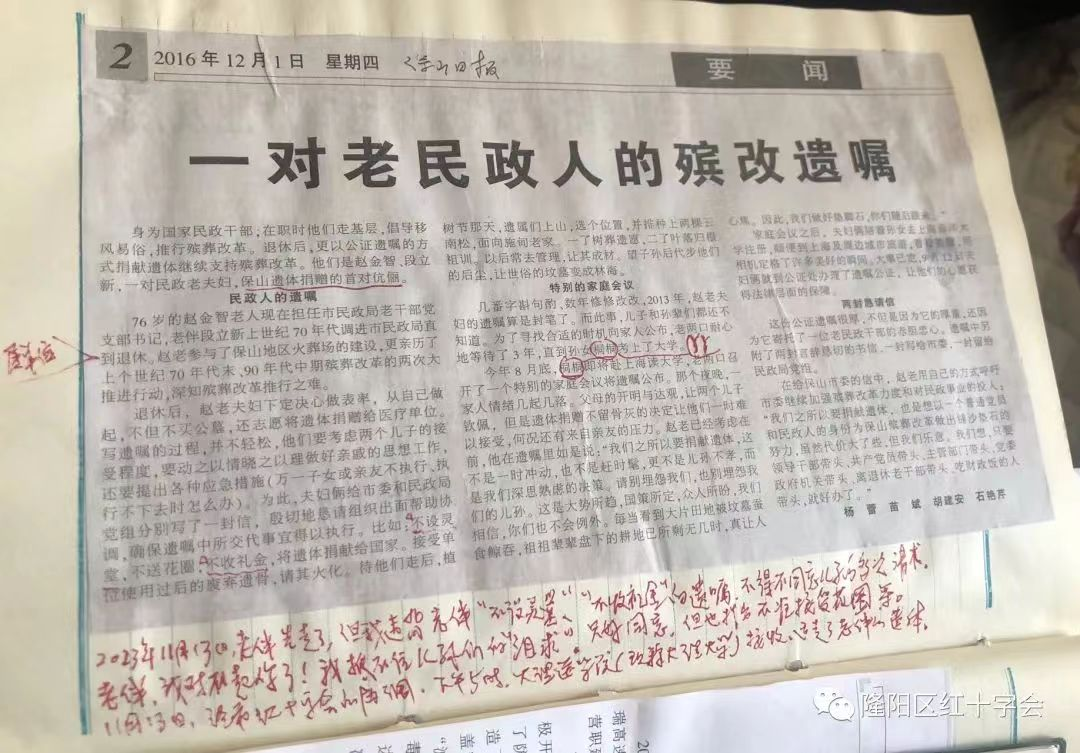 2
2016年12月1日 星期四
要 闻
一对老民政人的殡改遗嘱
身为国家民政干部,在职时他们走基层,倡导移
风易俗,推行殡葬改革。退休后,更以公证遗嘱的方
式捐献遗体继续支持殡葬改革。他们是赵金智、段立
新,一对民政老夫妇,保山遗体捐赠的首对伉俪。
民政人的遗嘱
76岁的赵金智老人现在担任市民政局老干部党
支部书记,老伴段立新上世纪70年代调进市民政局直
到退休。赵老参与了保山地区火葬场的建设,更亲历了
上个世纪70年代末、90年代中期殡葬改革的两次大
推进行动,深知殡葬改革推行之难。
退休后,赵老夫妇下定决心做表率,从自己做
起,不但不买公墓,还志愿将遗体捐赠给医疗单位。
写遗嘱的过程,并不轻松,他们要考虑两个儿子的接
受程度,要动之以情晓之以理做好亲戚的思想工作,
还要提出各种应急措施(万一子女或亲友不执行、执
行不下去时怎么办)。为此,夫妇俩给市委和民政局
党组分别写了一封信,殷切地恳请组织出面帮助协
调,确保遗嘱中所交代事宜得以执行。比如:不设灵
堂,不送花圈,不收礼金,将遗体捐献给国家。接受单
位使用过后的废弃遗骨,请其火化。待他们走后,植
树节那天,遗属们上山,选个位置,并排种上两棵云
南松,面向施甸老家。一了树葬遗愿,二了叶落归根
祖训。以后常去管理,让其成材。望子孙后代步他们
的后尘,让世俗的坟墓变成林海。
特别的家庭会议
几番字斟句酌,数年修修改改,2013年,赵老夫
妇的遗嘱算是封笔了。而此事,儿子和孙辈们都还不
知道。为了寻找合适的时机向家人公布,老两口耐心
地等待了3年,直到孙女桐桐考上了大学。
今年8月底,桐桐即将赴上海读大学,老两口召
开了一个特别的家庭会议将遗嘱公布。那个夜晚,一
家人情绪几起几落。父母的开明与达观,让两个儿子
钦佩,但是遗体捐赠不留骨灰的决定让他们一时难
以接受,何况还有来自亲友的压力。赵老已经考虑在
前,他在遗嘱里如是说:“我们之所以要捐献遗体,这
不是一时冲动,也不是赶时髦,更不是儿孙不孝,而
是我们深思熟虑的决策。请别埋怨我们,也别埋怨我
们的儿孙。这是大势所趋,国策所定,众人所盼,我们
相信,你们也不会例外。每当看到大片田地被坟墓蚕
食鲸吞,祖祖辈辈盘下的耕地已所剩无几时,真让人
心焦。因此,我们做好垫脚石,你们随后跟来。”
家庭会议之后,夫妇俩随着孙女去上海
大
学注册,顺便到上海及周边城市旅游,
相机定格了许多美好的瞬间。大事已定,9月12日夫
妇俩就到公证处办理了遗嘱公证,让他们的心愿获
得法律层面的保障。
两封恳请信
这份公证遗嘱很厚,不但是因为它的厚重,还因
为它寄托了一位老民政干部的赤胆忠心。遗嘱中另
附了两封言辞恳切的书信,一封写给市委,一封留给
民政局党组。
在给保山市委的信中,赵老用自己的方式呼吁
市委继续加强殡葬改革力度和对民政事业的投入:
“我们之所以要捐献遗体,也是想以一个普通党员
和民政人的身份为保山殡葬改革做出铺沙垫石的
努力,虽然代价大了些,但我们乐意。我们想,只要
领导干部带头、共产党员带头、主管部门带头、党委
政府机关带头、离退休老干部带头、吃财政饭的人
带头,就好办了。”
杨 蕾 苗 斌 胡建安 石艳芹
2023年11月13日,老伴先走了,但我违背老伴“不设灵堂”、“不收礼金”的遗嘱,不得不同意儿子的多次请求。
老伴,我对不起你了!
隆阳区红十字会